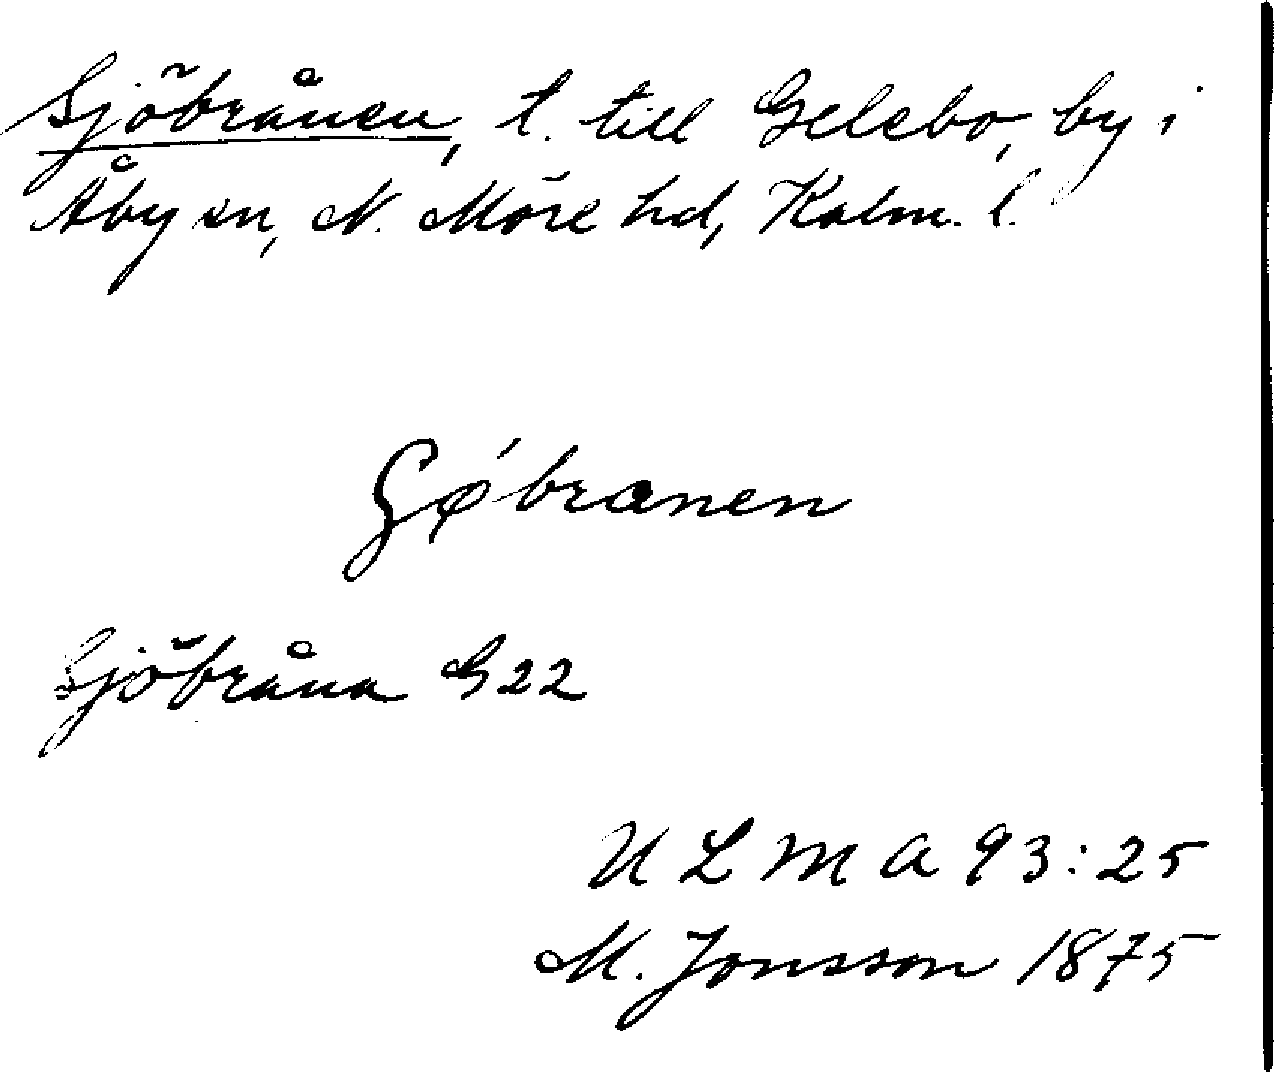 Sjöbrånen, t. till Gelebo, by i
Åby sn, N. Möre hd, Kalm. l.
Sjöbråna G22
U L M A 93:25
M. Jonsson 1875